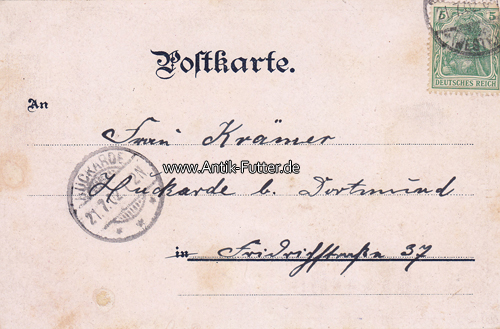 5 5
DEUTSCHES REICH
Postkarte.
An
Frau Krämer
HUCKARDE
21.7.02
www.Antik-Futter.de
Huckarde b. Dortmund
in Fridrichstraße 37